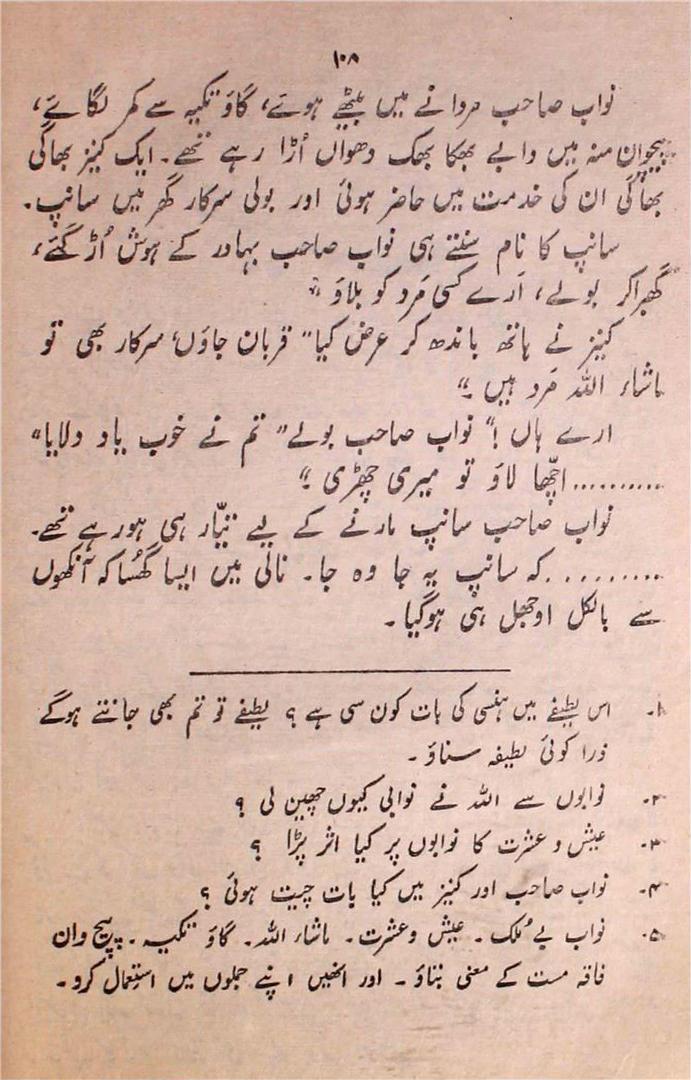 ۱۰۸
نواب صاحب مردانے میں بیٹھے ہوئے، گاؤ تکیہ سے کمر لگائے،
پیچوان منہ میں دابے بھکا بھک دھواں اُڑا رہے تھے۔ ایک کنیز بھاگی
بھاگی ان کی خدمت میں حاضر ہوئی اور بولی سرکار گھر میں سانپ۔
سانپ کا نام سنتے ہی نواب صاحب بہادر کے ہوش اُڑ گئے،
گھبرا کر بولے، اَرے کسی مَرد کو بلاؤ "
کنیز نے ہاتھ باندھ کر عرض کیا" قربان جاؤں، سرکار بھی تو
ماشاء اللہ مَرد ہیں۔"
ارے ہاں!" نواب صاحب بولے" تم نے خوب یاد دلایا"
..........اچّھا لاؤ تو میری چھڑی۔"
نواب صاحب سانپ مارنے کے لیے تیّار ہی ہو رہے تھے۔
..........کہ سانپ یہ جا وہ جا۔ نالی میں ایسا گھُسا کہ آنکھوں
سے بالکل اوجھل ہی ہوگیا۔
۱۔ اس لطیفے میں ہنسی کی بات کون سی ہے؟ لطیفے تو تم بھی جانتے ہوگے
ذرا کوئی لطیفہ سناؤ۔
۲۔ نوابوں سے اللہ نے نوابی کیوں چھین لی؟
۳۔ عیش و عشرت کا نوابوں پر کیا اثر پڑا؟
۴۔ نواب صاحب اور کنیز میں کیا بات چیت ہوئی؟
۵۔ نواب بے مُلک۔ عیش و عشرت۔ ماشاء اللہ۔ گاؤ تکیہ۔ پیچ وان
فاقہ مست کے معنی بتاؤ۔ اور انھیں اپنے جملوں میں استعمال کرو۔